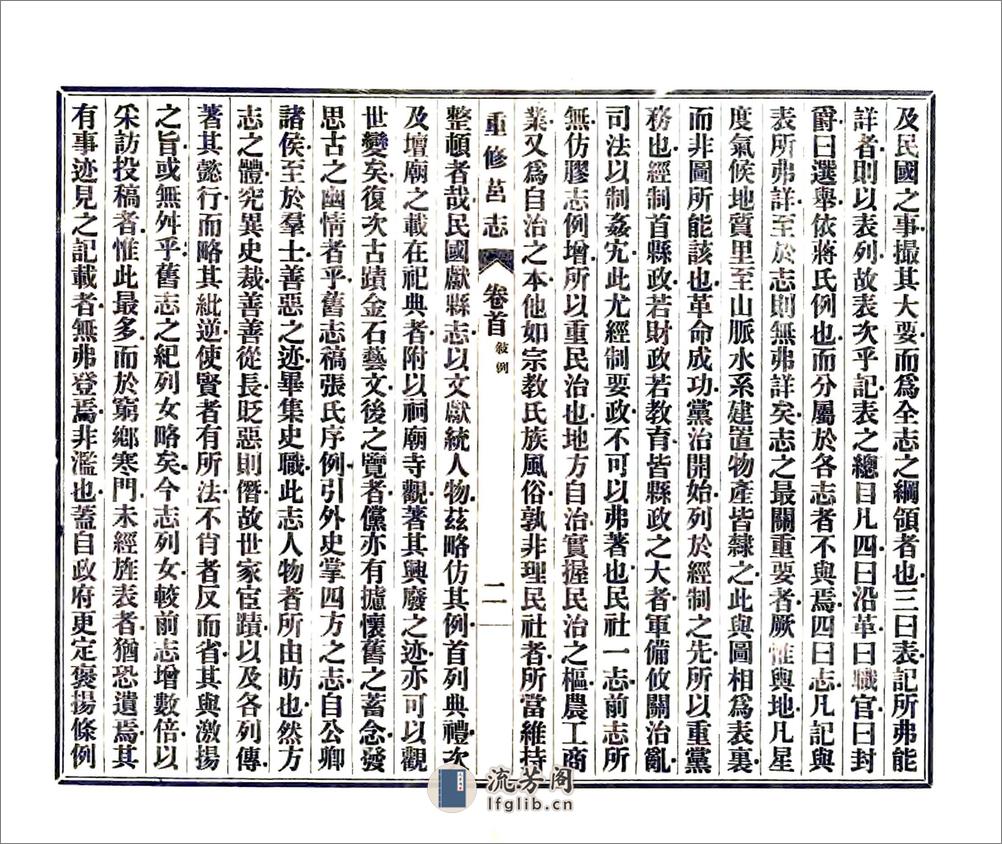 及民國之事撮其大要而爲全志之綱領者也三曰表記所弗能
詳者則以表列故表次乎記表之總目凡四曰沿革曰職官曰封
爵曰選舉依蔣氏例也而分屬於各志者不與焉四曰志凡記與
表所弗詳至於志則無弗詳矣志之最關重要者厥惟輿地凡星
度氣候地質里至山脈水系建置物產皆隸之此與圖相爲表裏
而非圖所能該也革命成功黨治開始列於經制之先所以重黨
務也經制首縣政若財政若教育皆縣政之大者軍備攸關治亂
司法以制姦宄此尤經制要政不可以弗著也民社一志前志所
無仿膠志例增所以重民治也地方自治實握民治之樞農工商
業又爲自治之本他如宗教氏族風俗孰非理民社者所當維持
重修莒志 卷首 敍例 二
整頓者哉民國獻縣志以文獻統人物茲略仿其例首列典禮次
及壇廟之載在祀典者附以祠廟寺觀著其興廢之迹亦可以觀
世變矣復次古蹟金石藝文後之覽者儻亦有攄懷舊之蓄念發
思古之幽情者乎舊志稿張氏序例引外史掌四方之志自公卿
諸侯至於羣士善惡之迹畢集史職此志人物者所由昉也然方
志之體究異史裁善善從長貶惡則僭故世家宦蹟以及各列傳
著其懿行而略其紕逆使賢者有所法不肖者反而省其與激揚
之旨或無舛乎舊志之紀列女略矣今志列女較前志增數倍以
采訪投稿者惟此最多而於窮鄉寒門未經旌表者猶恐遺焉其
有事迹見之記載者無弗登焉非濫也蓋自政府更定褒揚條例
流芳阁
lfglib.cn